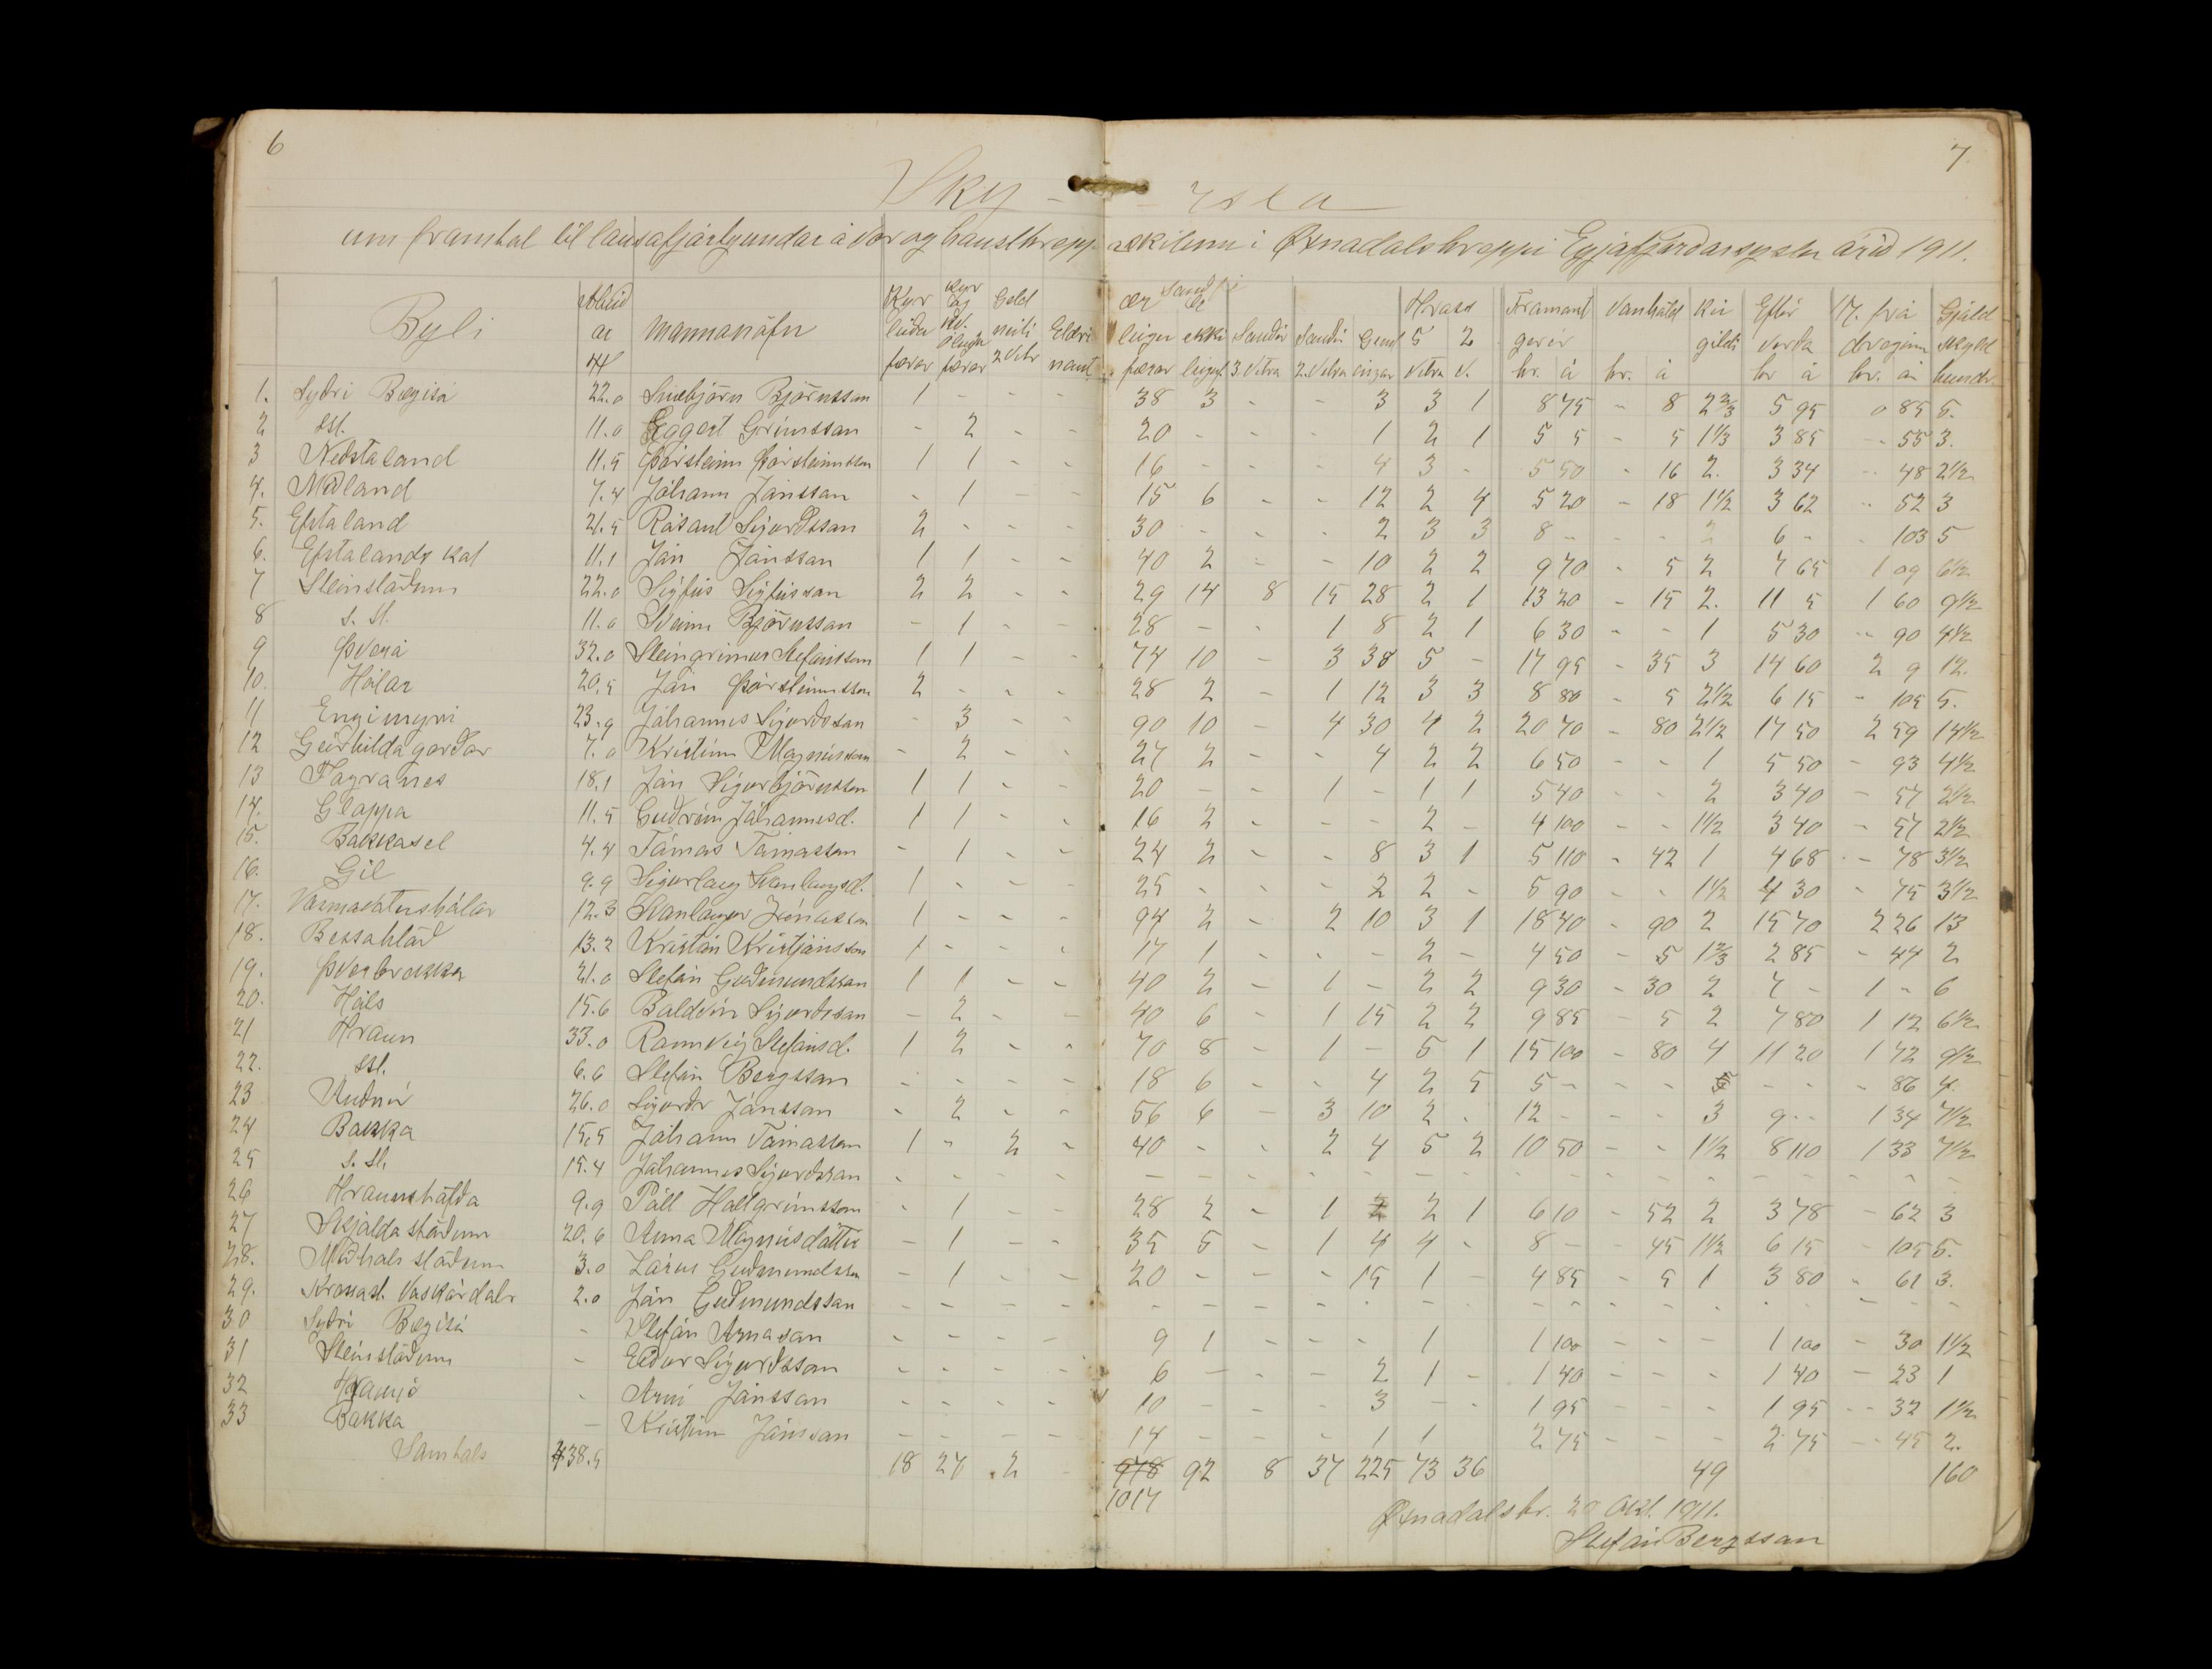 6
7
Ský - rsla
um framtal til lausafjártíundar á vor og hausthreppaskilum í Øxnadalshreppi Eyjafjarðarsyslu árið 1911.
Byli Mannanöfn Kyr leiðu færar Kyr og kv. óleigu færar Geld neiti 2 vetr Eldri naut Ær leigu færar Sauð Ær ekki leiguf. Sauðir 3 vetra Sauði 2. vetra Geml ingar Hross 5 vetra 2 v. Framant gerir kr. á Vanhöld kr. á Kú gildi Eftir verða kr á 1/7. frá dreginn kr. á Gjald skyld hundr.
1. Syðri Bægisá 22.0 Snæbjörn Björnsson 1 - - - 38 3 - - 3 3 1 8 75 - 8 2 2/3 5 95 0 85 5.
2 sst. 11.0 Eggert Grímsson - 2 - - 20 - - - 1 2 1 5 5 - 5 1 1/3 3 85 - 55 3.
3 Neðstaland 11.5 Þorsteinn Þorsteinsson 1 1 - - 16 - - - 4 3 - 5 50 - 16 2. 3 34 - 48 2 1/2
4. Miðland 7.4 Jóhann Jónsson - 1 - - 15 6 - - 12 2 4 5 20 - 18 1 1/2 3 62 - 52 3
5. Efstaland 21.5 Rósant Sigurðsson 2 - - - 30 - - - 2 3 3 8 - - - 2 6 - - 103 5
6. Efstalands kot 11.1 Jón Jónsson 1 1 - - 40 2 - - 10 2 2 9 70 - 5 2 7 65 1 09 6 1/2
7 Steinstöðum 22.0 Sigfús Sigfússon 2 2 - - 29 14 8 15 28 2 1 13 20 - 15 2. 11 5 1 60 9 1/2
8 s. st. 11.0 Sveinn Björnsson - 1 - - 28 - - 1 8 2 1 6 30 - - 1 5 30 - 90 4 1/2
9 Þverá 32.0 Steingrimur Stefánsson 1 1 - - 74 10 - 3 38 5 - 17 95 - 35 3 14 60 2 9 12.
10. Hólar 20.5 Jón Þorsteinsson 2 - - - 28 2 - 1 12 3 3 8 80 - 5 2 1/2 6 15 - 105 5.
11 Engimyri 23.9 Jóhannes Sigurðsson - 3 - - 90 10 - 4 30 4 2 20 70 - 80 2 1/2 17 50 2 59 14 1/2
12 Geirhildagarðar 7.0 Kristinn Magnússon - 2 - - 27 2 - - 4 2 2 6 50 - - 1 5 50 - 93 4 1/2
13 Fagranes 18.1 Jón Sigurbjörnsson 1 1 - - 20 - - 1 - 1 1 5 40 - - 2 3 40 - 57 2 1/2
14. Gloppa 11.5 Guðrún Jóhannesd. 1 1 - - 16 2 - - - 2 - 4 100 - - 1 1/2 3 40 - 57 2 1/2
15. Bakkasel 4.4 Tómas Tómasson - 1 - - 24 2 - - 8 3 1 5 110 - 42 1 4 68 - 78 3 1/2
16. Gil 9.9 Sigurlaug Svanlaugsd. 1 - - - 25 - - - 2 2 - 5 90 - - 1 1/2 4 30 - 75 3 1/2
17. Varmavatnshólar 12.3 Svanlaugur Jónasson 1 - - - 94 2 - 2 10 3 1 18 40 - 90 2 15 70 2 26 13
18. Bessahlöð 13.2 Kristán Kristjánsson 1 - - - 17 1 - - - 2 - 4 50 - 5 1 2/3 2 85 - 44 2
19. Þverbrekka 21.0 Stefán Guðmundsson 1 1 - - 40 2 - 1 - 2 2 9 30 - 30 2 7 - 1 - 6
20. Háls 15.6 Baldvin Sigurðsson - 2 - - 40 6 - 1 15 2 2 9 85 - 5 2 7 80 1 12 6 1/2
21 Hraun 33.0 Rannveig Stefánsd. 1 2 - - 70 8 - 1 - 5 1 15 100 - 80 4 11 20 1 72 9 1/2
22. sst. 6.6 Stefán Bergsson - - - - 18 6 - - 4 2 5 5 - - - - - - 86 4.
23 Auðnir 26.0 Sigurðr Jónsson - 2 - - 56 6 - 3 10 2 - 12 - - - 3 9 - 1 34 7 1/2
24 Bakka 15.5 Jóhann Tómasson 1 - 2 - 40 - - 2 4 5 2 10 50 - - 1 1/2 8 110 1 33 7 1/2
25 s. st. 15.4 Jóhannes Sigurðsson - - - - - - - - - - - - - - - - - - - - -
26 Hraunshöfða 9.9 Páll Hallgrímsson - 1 - - 28 2 - 1 2 2 1 6 10 - 52 2 3 78 - 62 3
27 Skjaldastöðum 20.6 Anna Magnúsdóttir - 1 - - 35 5 - 1 4 4 - 8 - - 45 1 1/2 6 15 - 105 5.
28. Miðhálsstöðum 3.0 Lárus Guðmundsson - 1 - - 20 - - - 15 1 - 4 85 - 5 1 3 80 - 61 3.
29. Krossast. Vaskárdalr 2.0 Jón Guðmundsson - - - - - - - - - - - - - - - - - - - - -
30 Syðri Bægisá - Stefán Arnason - - - - 9 1 - - - 1 1 100 - - - 1 100 - 30 1 1/2
31 Steinstöðum - Eiður Sigurðsson - - - - 6 - - - 2 1 - 1 40 - - - 1 40 - 23 1
32 - Arni Jónsson - - - - 10 - - - 3 - - 1 95 - - - 1 95 - 32 1 1/2
33 Bakka - Kristinn Jónsson - - - - 14 - - - 1 1 2 75 - - - 2 75 - 45 2.
Samtals 438.5 18 27 2 - 978 92 8 37 225 73 36 49 160
1017
Øxnadalshr. 20 Okt. 1911.
Stefán Bergsson